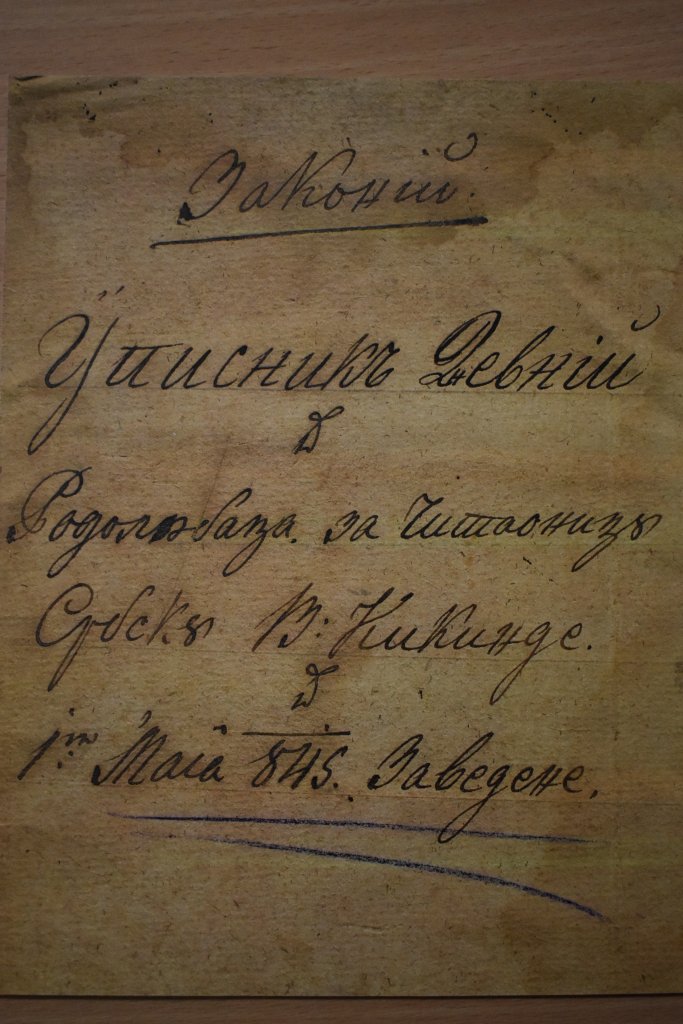 Законій.
Ўписникъ Дневній
Родолюбаца. за Читаоницȣ
Србскȣ В: Кикинде.
1га Маіа 845. Заведене.